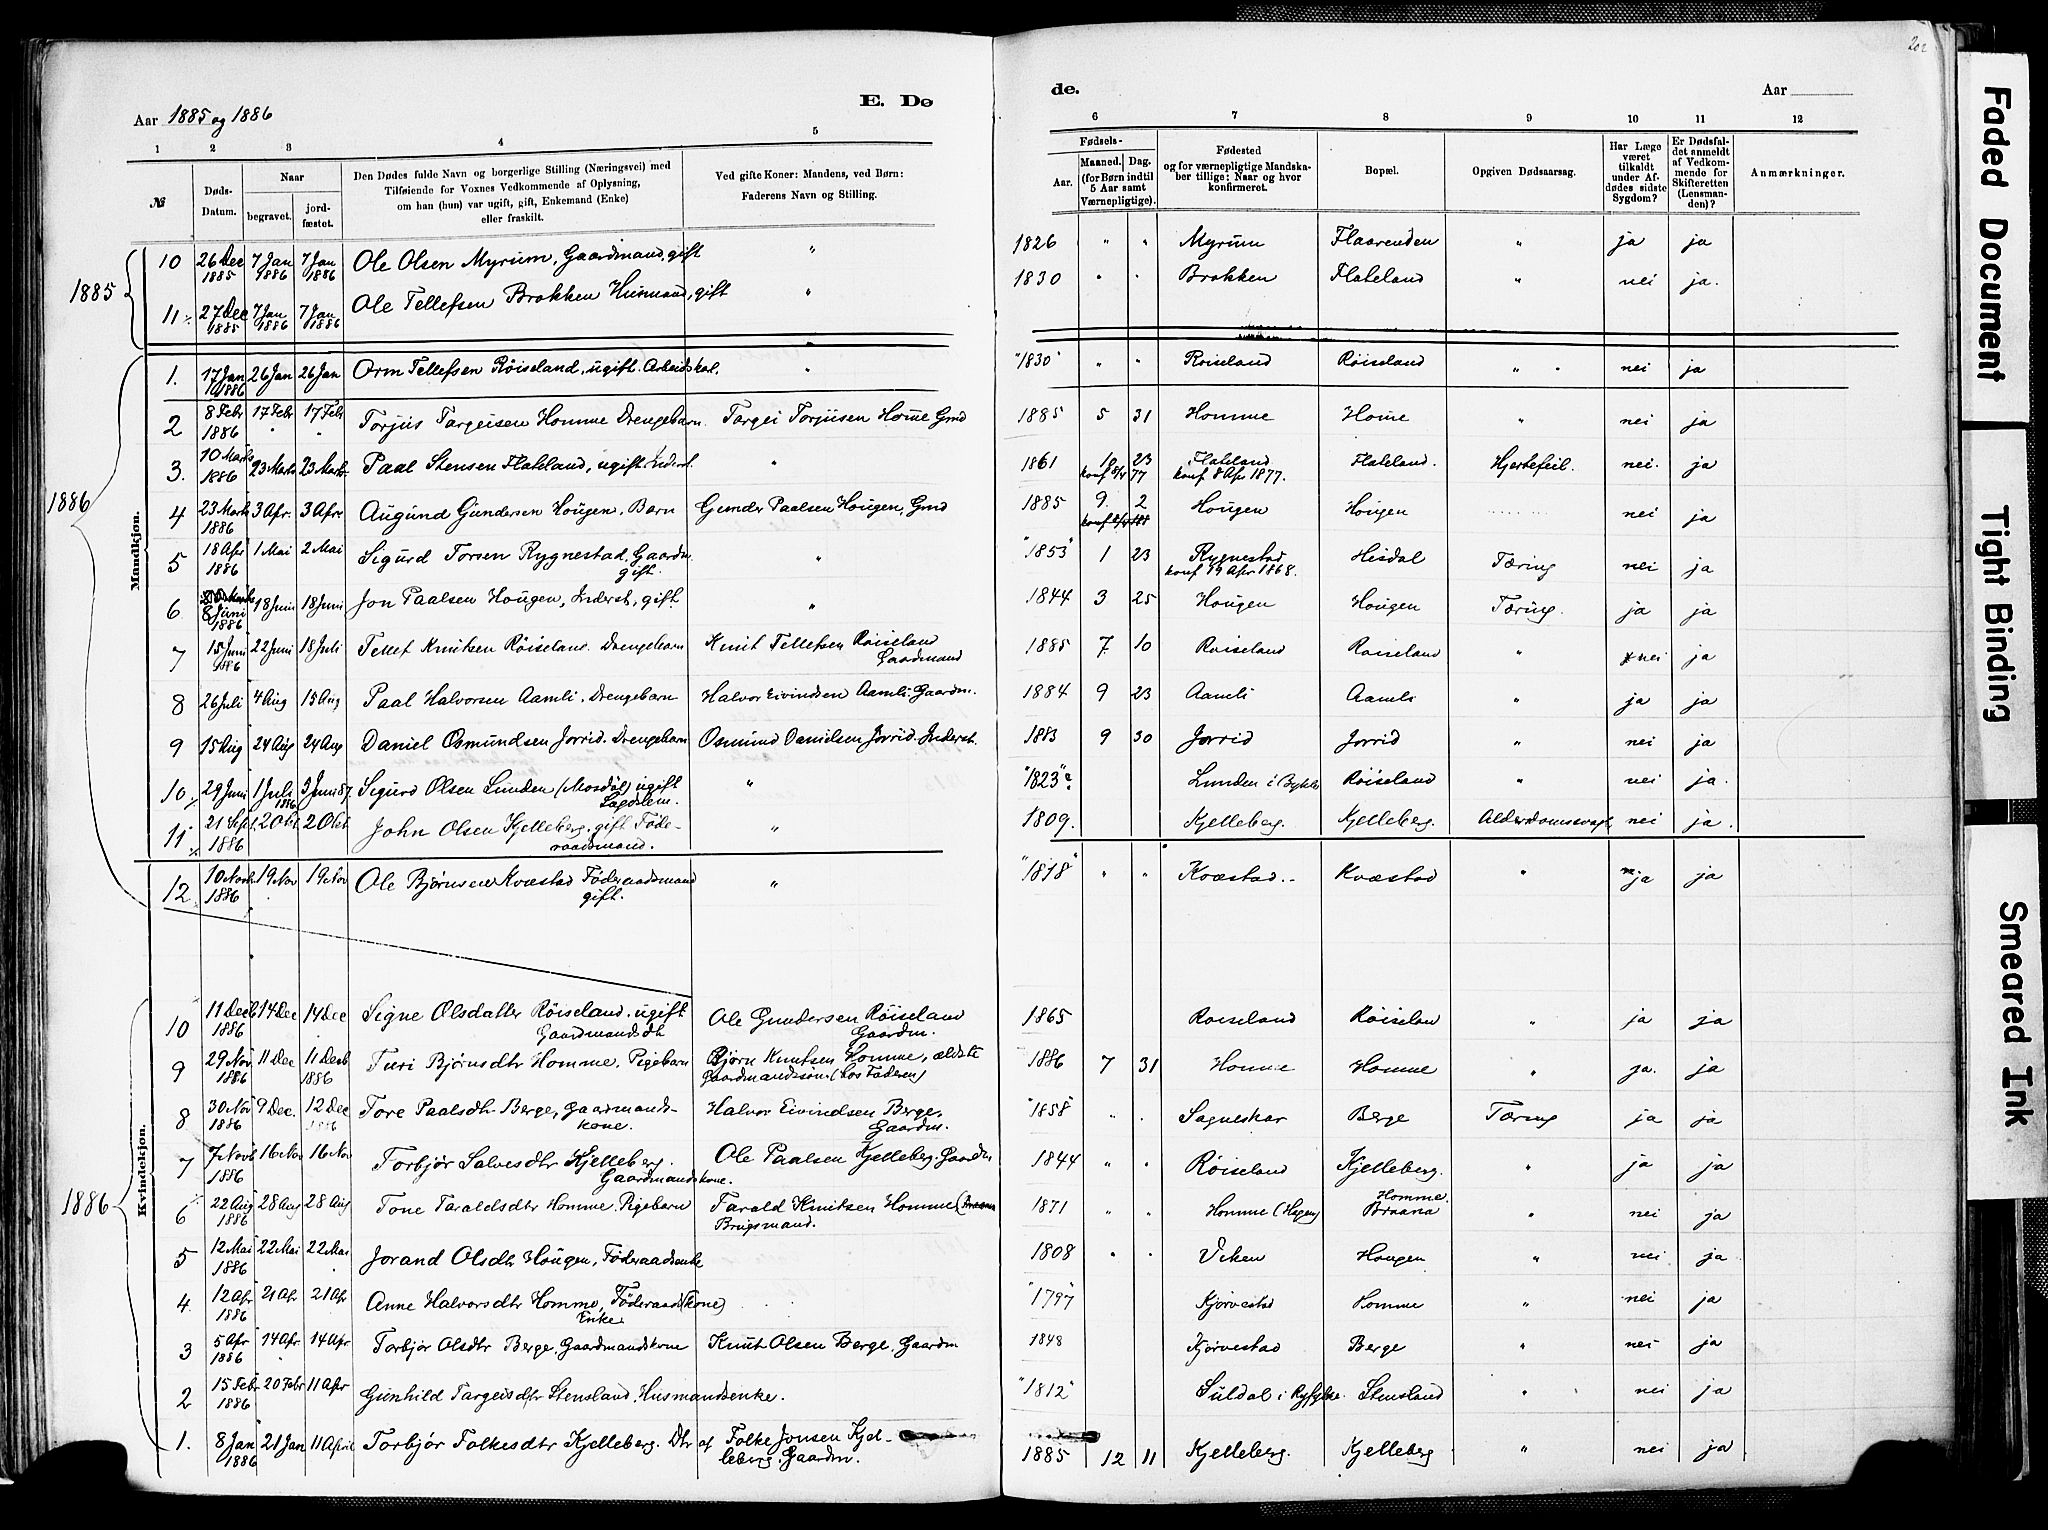 202
Aar 1885 og 1886
E. Dø
de.
Aar
1 2 3 4 5 6 7 8 9 10 11 12
№
Døds-Datum.
Naar
begravet.
jordfæstet.
Den Dødes fulde Navn og borgerlige Stilling (Næringsvei) med
Tilføiende for Voxnes Vedkommende af Oplysning,
om han (hun) var ugift, gift, Enkemand (Enke)
eller fraskilt.
Ved gifte Koner: Mandens, ved Børn:
Faderens Navn og Stilling.
Fødsels-
Aar.
Maaned. Dag.
(for Børn indtil
5 Aar samt
Værnepligtige).
Fødested
og for værnepligtige Mandska-
ber tillige: Naar og hvor
konfirmeret.
Bopæl.
Opgiven Dødsaarsag.
Har Læge
været
tilkaldt
under Af-
dødes sidste
Sygdom?
Er Dødsfal-
det anmeldt
af Vedkom-
mende for
Skifteretten
(Lensman-
den)?
Anmærkninger.
1885
10 26 Dec 1885 7 Jan 1886 7 Jan 1886 Ole Olsen Myrum, Gaardmand, gift " 1826 " " Myrum Flaarenden " ja ja
11 27 Dec 1885 7 Jan 1886 7 Jan 1886 Ole Tellefsen Brokken Husmand, gift " 1830 " " Brokken Flateland " nei ja.
1886
Mandkjøn.
1. 17 Jan 1886 26 Jan 26 Jan Orm Tellefsen Røiseland, ugift. Arbeidskal. " "1830" " " Roiseland Røiseland " nei ja
2 8 Febr 1886 17 Febr 17 Febr Torjus Targeisen Homme Drengebarn. Targei Torjusen Home Gmd 1885 5 31 Homme Home " nei ja
3. 10 Marts 1886 23 Marts 23 Marts Paal Stensen Flateland, ugift Inderst. " 1861 10 23 Flateland konf 8 Apr 1877. Flateland. Hjertefeil. nei. ja
4 23 Marts 1886 3 Apr. 3 Apr. Augund Gundersen Hougen, Barn Gunder Paalsen Hougen, Gmd 1885 9. 2 Hougen Hougen nei ja
5 18 Apr 1886 1 Mai 2 Mai Sigurd Torsen Rygnestad, Gaardm. gift. " "1853" 1 23 Rygnestad konf 19 Apr 1868. Hisdal Tæring nei ja
6 8 Juni 1886 18 Juni 18 Juni Jon Paalsen Hougen, Inderst, gift. " 1844 3 25 Hougen Hougen Tæring. ja ja
7 15 Juni 1886 22 Juni 18 Juli Tellef Knutsen Røiseland. Drengebarn Knut Tellefsen Røiseland Gaardmand 1885 7. 10 Roiseland Roiseland " nei ja
8 26 Juli 4 Aug 15 Aug Paal Halvorsen Aamli. Drengebarn Halvor Eivindsen Aamli. Gaardm. 1884 9 23 Aamli Aamli " ja ja
9 15 Aug 24 Aug 24 Aug Daniel Osmundsen Jorrid. Drengebarn Osmund Danielsen Jorrid. Inderst. 1883 9 30 Jorrid Jorrid " nei ja
10 29 Juni 1 Juli 1886 3 Juni 87. Sigurd Olsen Lunden (Mosdøl) ugift Lægdslem. " "1823" Lunden i Bykle Røiseland " nei ja.
11 21 Sept. 1886 2 Okt 2 Okt John Olsen Kjelleberg. gift Føderaadsmand. " 1809. Kjelleberg. Kjelleberg. Alderdomssvagh. nei ja.
12 10 Novb 1886 19 Nov 19 Nov Ole Bjørnsen Kvæstad Føderaadsmand gift. " "1818" " " Kvæstad. Kvæstad " ja ja
1886
Kvindekjøn.
10 11 Decb 1886 14 Dec 14 Dec Signe Olsdatter Røiseland. ugift Gaardmandsdt Ole Gundersen Røiseland Gaardm. 1865 Roiseland Røiselan " ja ja
9 29 Nov 1886 11 Dec 11 Decb 1886 Turi Bjørnsdtr Homme. Pigebarn Bjørn Knutsen Homme, ældste Gaardmandssøn (hos Faderen) 1886 7 31 Homme Homme " ja. ja
8 30 Nov 1886 9 Dec. 12 Dec 1886 Tore Paalsdtr Berge, gaardmandskone. Halvor Eivindsen Berge, Gaardm. "1858" " . Sagneskar Berge Tæring ja ja
7 7 Novb 1886 16 Nov 16 Nov Torbjør Salvesdtr Kjelleberg. Gaardmandskone. Ole Paalsen Kjelleberg. Gaardm 1844 " " Røiseland Kjelleberg. " ja ja
6 22 Aug 1886 28 Aug 28 Aug Tone Taraldsdtr Homme. Pigebarn Tarald Knutsen Homme Brugsmand. 1871 " " Homme (Hagen) Homme. Braana " nei ja
5 12 Mai 1886 22 Mai 22 Mai Jorand Olsdtr Hougen, Føderaadsenke 1808 " . Viken Hougen " nei ja.
4. 12 Apr 1886 21 Apr 21 Apr Anne Halvorsdtr Homme, Føderaad(kone) Enke "1797" Kjørvestad Homme " nei ja
3 5 Apr 1886 14 Apr 14 Apr Torbjør Olsdtr Berge, Gaardmandskone Knut Olsen Berge. Gaardm 1848 Kjørvestad Berge " nei ja
2 15 Febr 1886 20 Febr 11 Apr Gunhild Targeisdtr Stensland. Husmandsenke. "1812" Suldal i Ryfylke. Stensland " nei ja
1. 8 Jan 1886 21 Jan 11 April Torbjør Folkesdtr Kjelleberg. Dtr af Folke Jonsen Kjelleberg. Gaardm. 1885 12 11 Kjelleberg. Kjelleberg " nei ja
Faded Document
Tight Binding
Smeared Ink